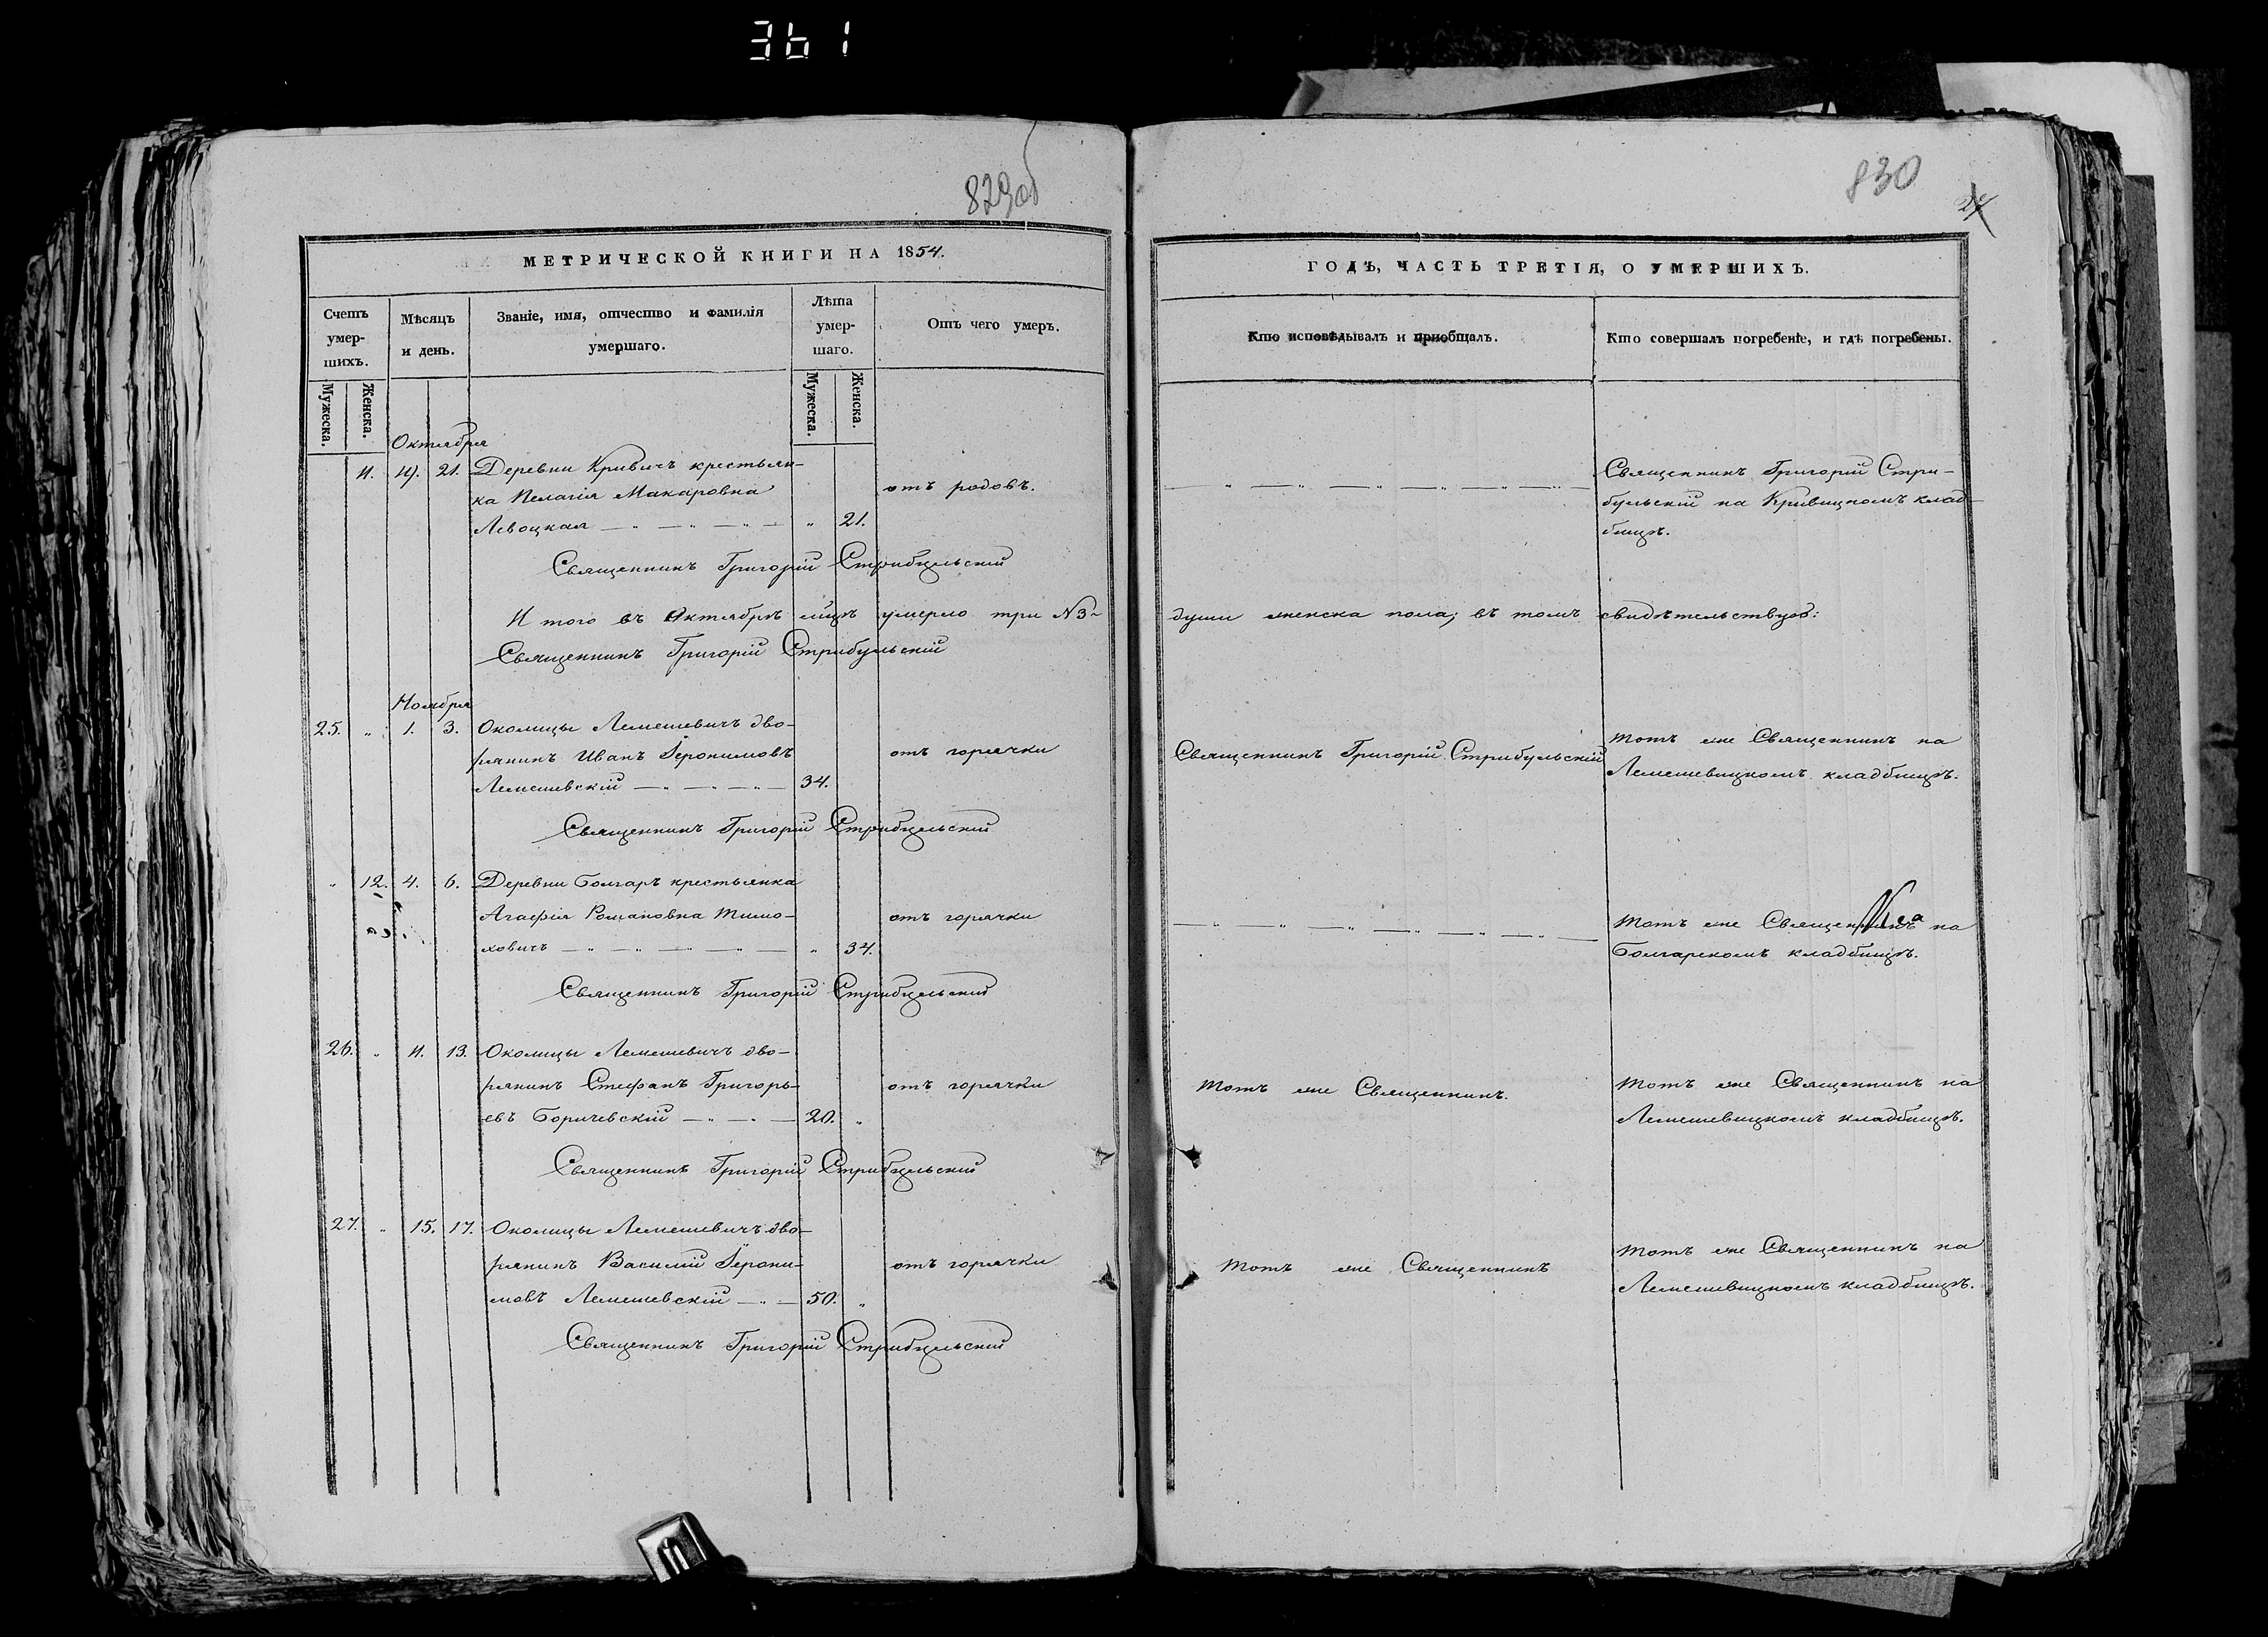 361
829об
МЕТРИЧЕСКОЙ КНИГИ НА 1854.
Счетъ умер-шихъ.
Мѣсяцъ и день.
Званіе, имя, отчество и фамилія умершаго.
Лѣта умер-шаго.
Отъ чего умеръ.
Мужеска.
Женска.
Мужеска.
Женска.
Октября
11. 19. 21. Деревни Кривичъ крестьян-
ка Пелагія Макаровна
Левоцкая — „ — „ — „ 21.
отъ родовъ.
Священникъ Григорій Стрибульскій
И того въ Октябрѣ мцѣ умерло три №3-
Священникъ Григорій Стрибульскій
Ноября
25. „ 1. 3. Околицы Лемешевичъ дво-
рянинъ Иванъ Іеронимовъ
Лемешевскій — „ — „ — 34.
отъ горячки
Священникъ Григорій Стрибульскій
„ 12. 4. 6. Деревни Болгаръ крестьянка
Агафія Романовна Тимо-
ховичъ — „ — „ — „ 34.
отъ горячки
Священникъ Григорій Стрибульскій
26. „ 11. 13. Околицы Лемешевичъ дво-
рянинъ Стефанъ Григорь-
евъ Боричевскій — „ — 20. „
отъ горячки
Священникъ Григорій Стрибульскій
27. „ 15. 17. Околицы Лемешевичъ дво-
рянинъ Василій Іерони-
мовъ Лемешевскій — „ — 50. „
отъ горячки
Священникъ Григорій Стрибульскій
830
27
ГОДЪ, ЧАСТЬ ТРЕТІЯ, О УМЕРШИХЪ.
Кто исповѣдывалъ и приобщалъ.
Кто совершалъ погребеніе, и гдѣ погребены.
Священникъ Григорій Стри-
бульскій на Кривицкомъ клад-
бищѣ.
души женска пола; въ томъ свидѣтельствую:
Священникъ Григорій Стрибульскій
Тотъ же Священникъ на
Лемешевицкомъ кладбищѣ.
Тотъ же Священникъ на
Болгарскомъ кладбищѣ.
Тотъ же Священникъ.
Тотъ же Священникъ на
Лемешевицкомъ кладбищѣ.
Тотъ же Священникъ
Тотъ же Священникъ на
Лемешевицкомъ кладбищѣ.